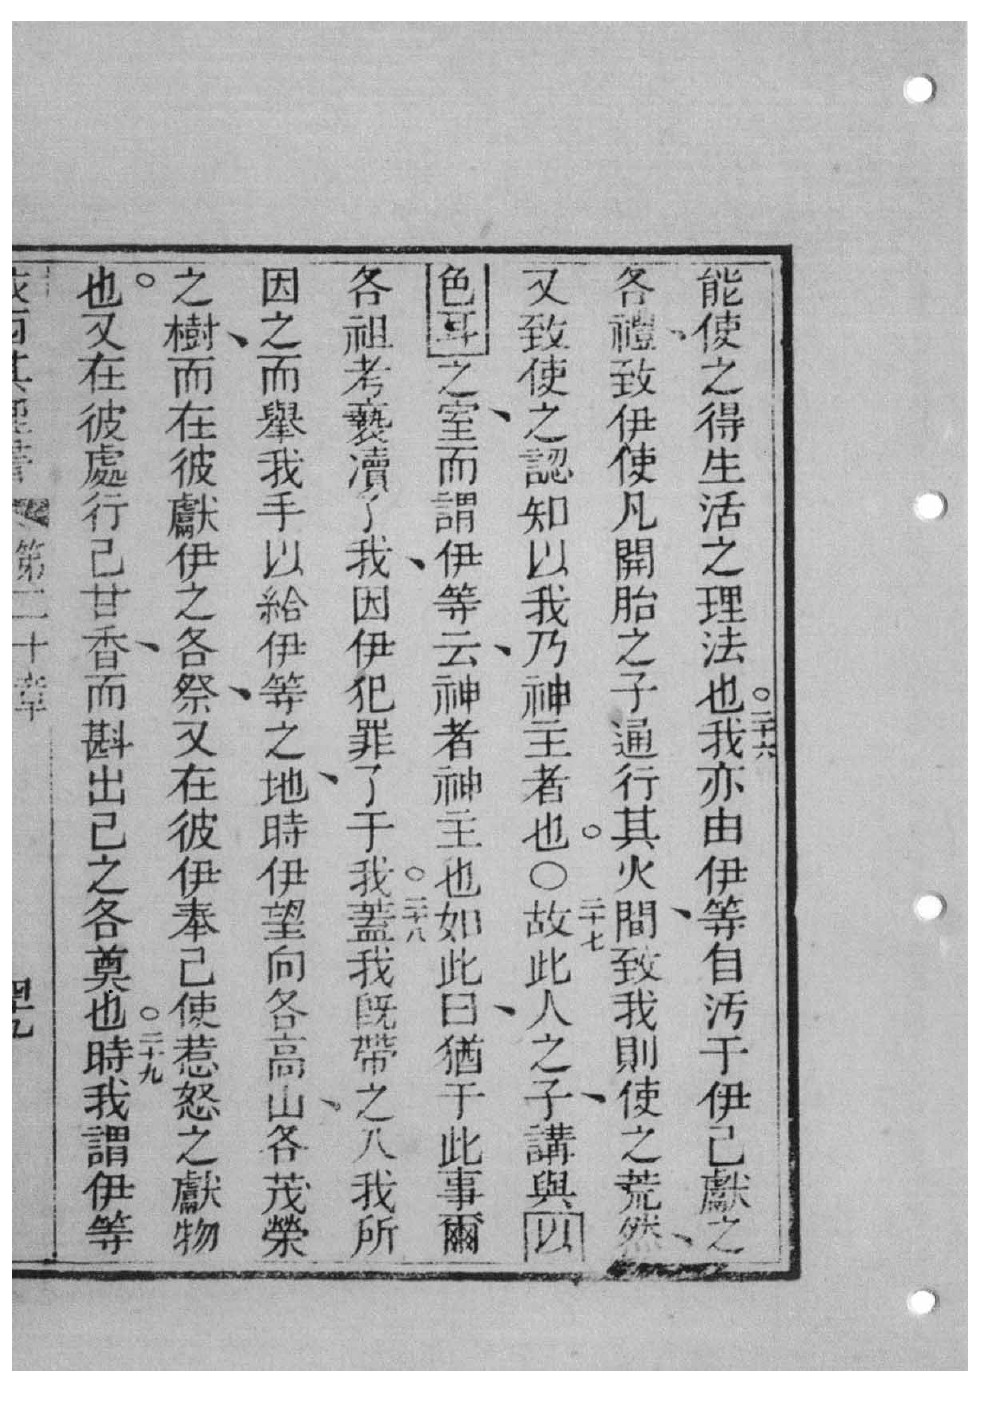 能使之得生活之理法也。二十六我亦由伊等自汚于伊己獻之
各禮、致伊使凡開胎之子通行其火間、致我則使之荒然、
又致使之認知以我乃神主者也。〇二十七故此人之子、講與以
色耳之室、而謂伊等云、神者神主也如此曰、猶于此事爾
各祖考褻瀆了我、因伊犯罪了于我。二十八蓋我既帶之入我所
因之而舉我手以給伊等之地、時伊望向各高山、各茂榮
之樹、而在彼獻伊之各祭、又在彼伊奉己使惹怒之獻物
也。又在彼處行己甘香、而斟出己之各奠也。二十九時我謂伊等
第二十章